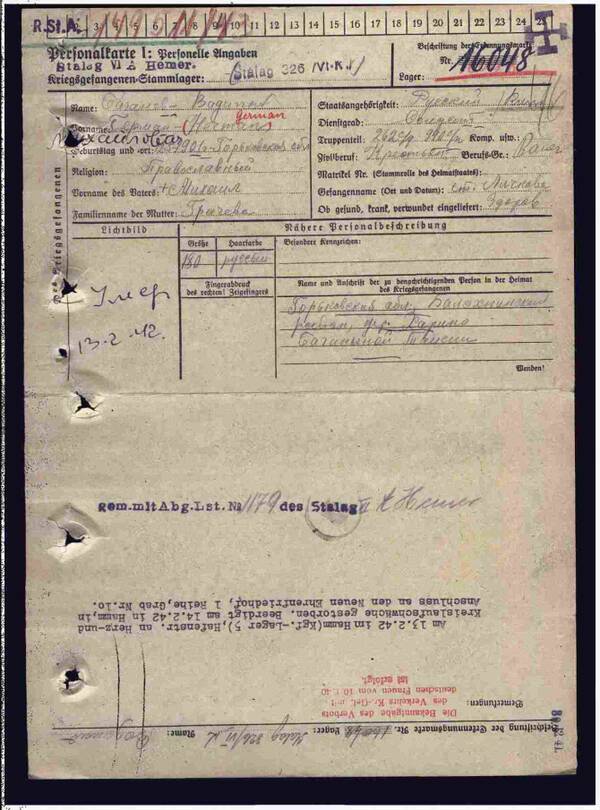 R.St.A. 3 4 5 6 7 8 9 10 11 12 13 14 15 16 17 18 19 20 21 22 23 24 25
Personalkarte I: Personelle Angaben
Stalag VI A Hemer.
Kriegsgefangenen-Stammlager: Stalag 326 /VI-K
Beschriftung der Erkennungsmarke
Nr. 16048
Lager:
Des Kriegsgefangenen
Name:
Vorname:
german
Geburtstag und -ort: Горьковской обл
Religion: Православный
Vorname des Vaters: Михаил
Familienname der Mutter: Грачева
Staatsangehörigkeit: Русский
Dienstgrad:
Truppenteil: Komp. usw.:
Zivilberuf: Berufs-Gr.: Bauer
Matrikel Nr. (Stammrolle des Heimatstaates):
Gefangennahme (Ort und Datum): ст. Лычково
Ob gesund, krank, verwundet eingeliefert: Здоров
Lichtbild
Nähere Personalbeschreibung
Größe Haarfarbe Besondere Kennzeichen:
180 русый
Умер
13-2-42.
Fingerabdruck
des rechten! Zeigefingers
Name und Anschrift der zu benachrichtigenden Person in der Heimat
des Kriegsgefangenen
Горьковская обл, Балахнинский
район, дер. Ларино
Wenden!
gem.mit Abg.Lst.№ 1179 des Stalag VI A Hemer
Am 13.2.42 im Hamm (Kgf.-Lager 5), Hafenstr. an Herz-und-
Kreislaufschwäche gestorben. Beerdigt am 14.2.42 in Hamm, in
Anschluss an den Neuen Ehrenfriedhof, 1 Reihe, Grab Nr.10.
Bemerkungen:
Die Bekanntgabe des Verbots
des Verkehrs Kr.-Gef. mit
deutschen Frauen vom 10.1.40
ist erfolgt.
Beschriftung der Erkennungsmarke Nr. 16048 Lager: Stalag 326/VI K Name: